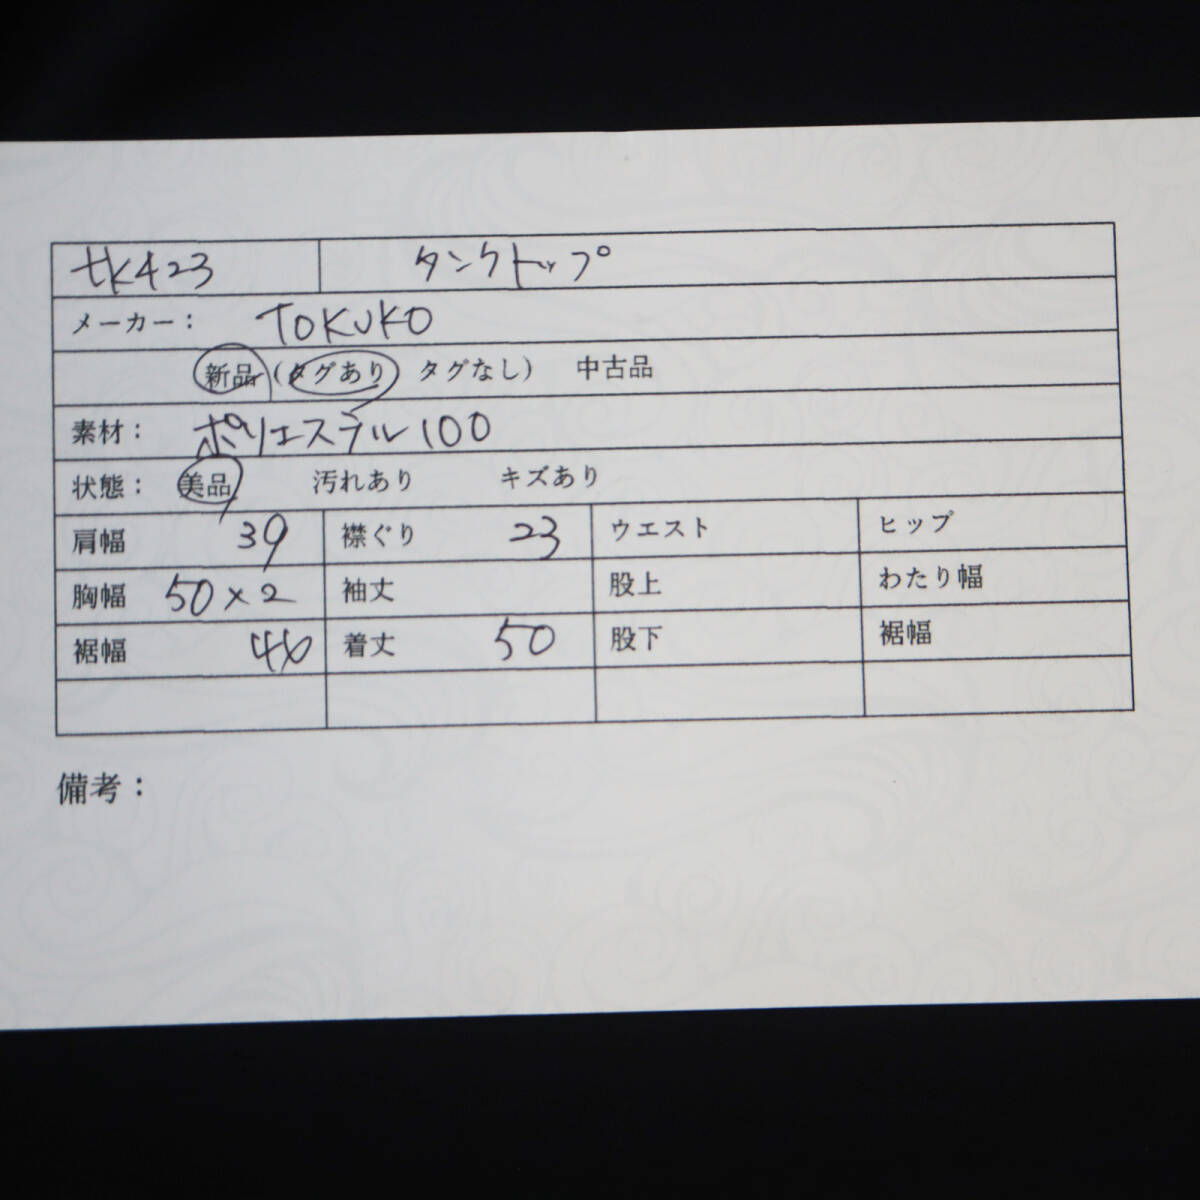 tk423 タンクトップ
メーカー： TOKUKO
新品 (タグあり タグなし) 中古品
素材： ポリエステル100
状態： 美品 汚れあり キズあり
肩幅 39 襟ぐり 23 ウエスト ヒップ
胸幅 50×2 袖丈 股上 わたり幅
裾幅 着丈 50 股下 裾幅
備考：